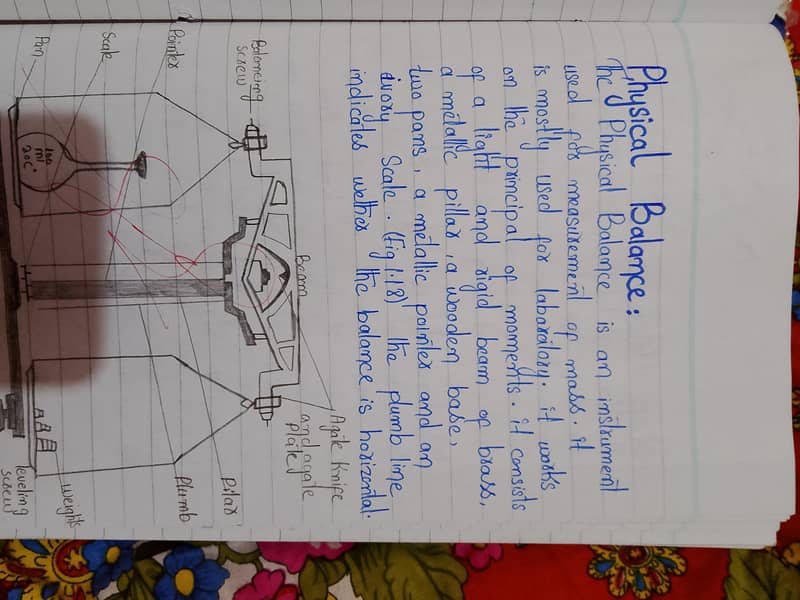 Physical Balance:
The Physical Balance is an instrument
used for measurement of mass. it
is mostly used for labaratory. it works
on the principal of moments. it consists
of a light and rigid beam of brass,
a metallic pillar, a wooden base,
two pans, a metallic pointer and an
ivory Scale. (fig 1.18) the plumb line
indicates wether the balance is horizental.
Balancing
screw
Beam
Agate Knife
and agate
plate
Pointer
Scale
Pan
100
ml
20C°
Pilar
Plumb
weights
leveling
screw